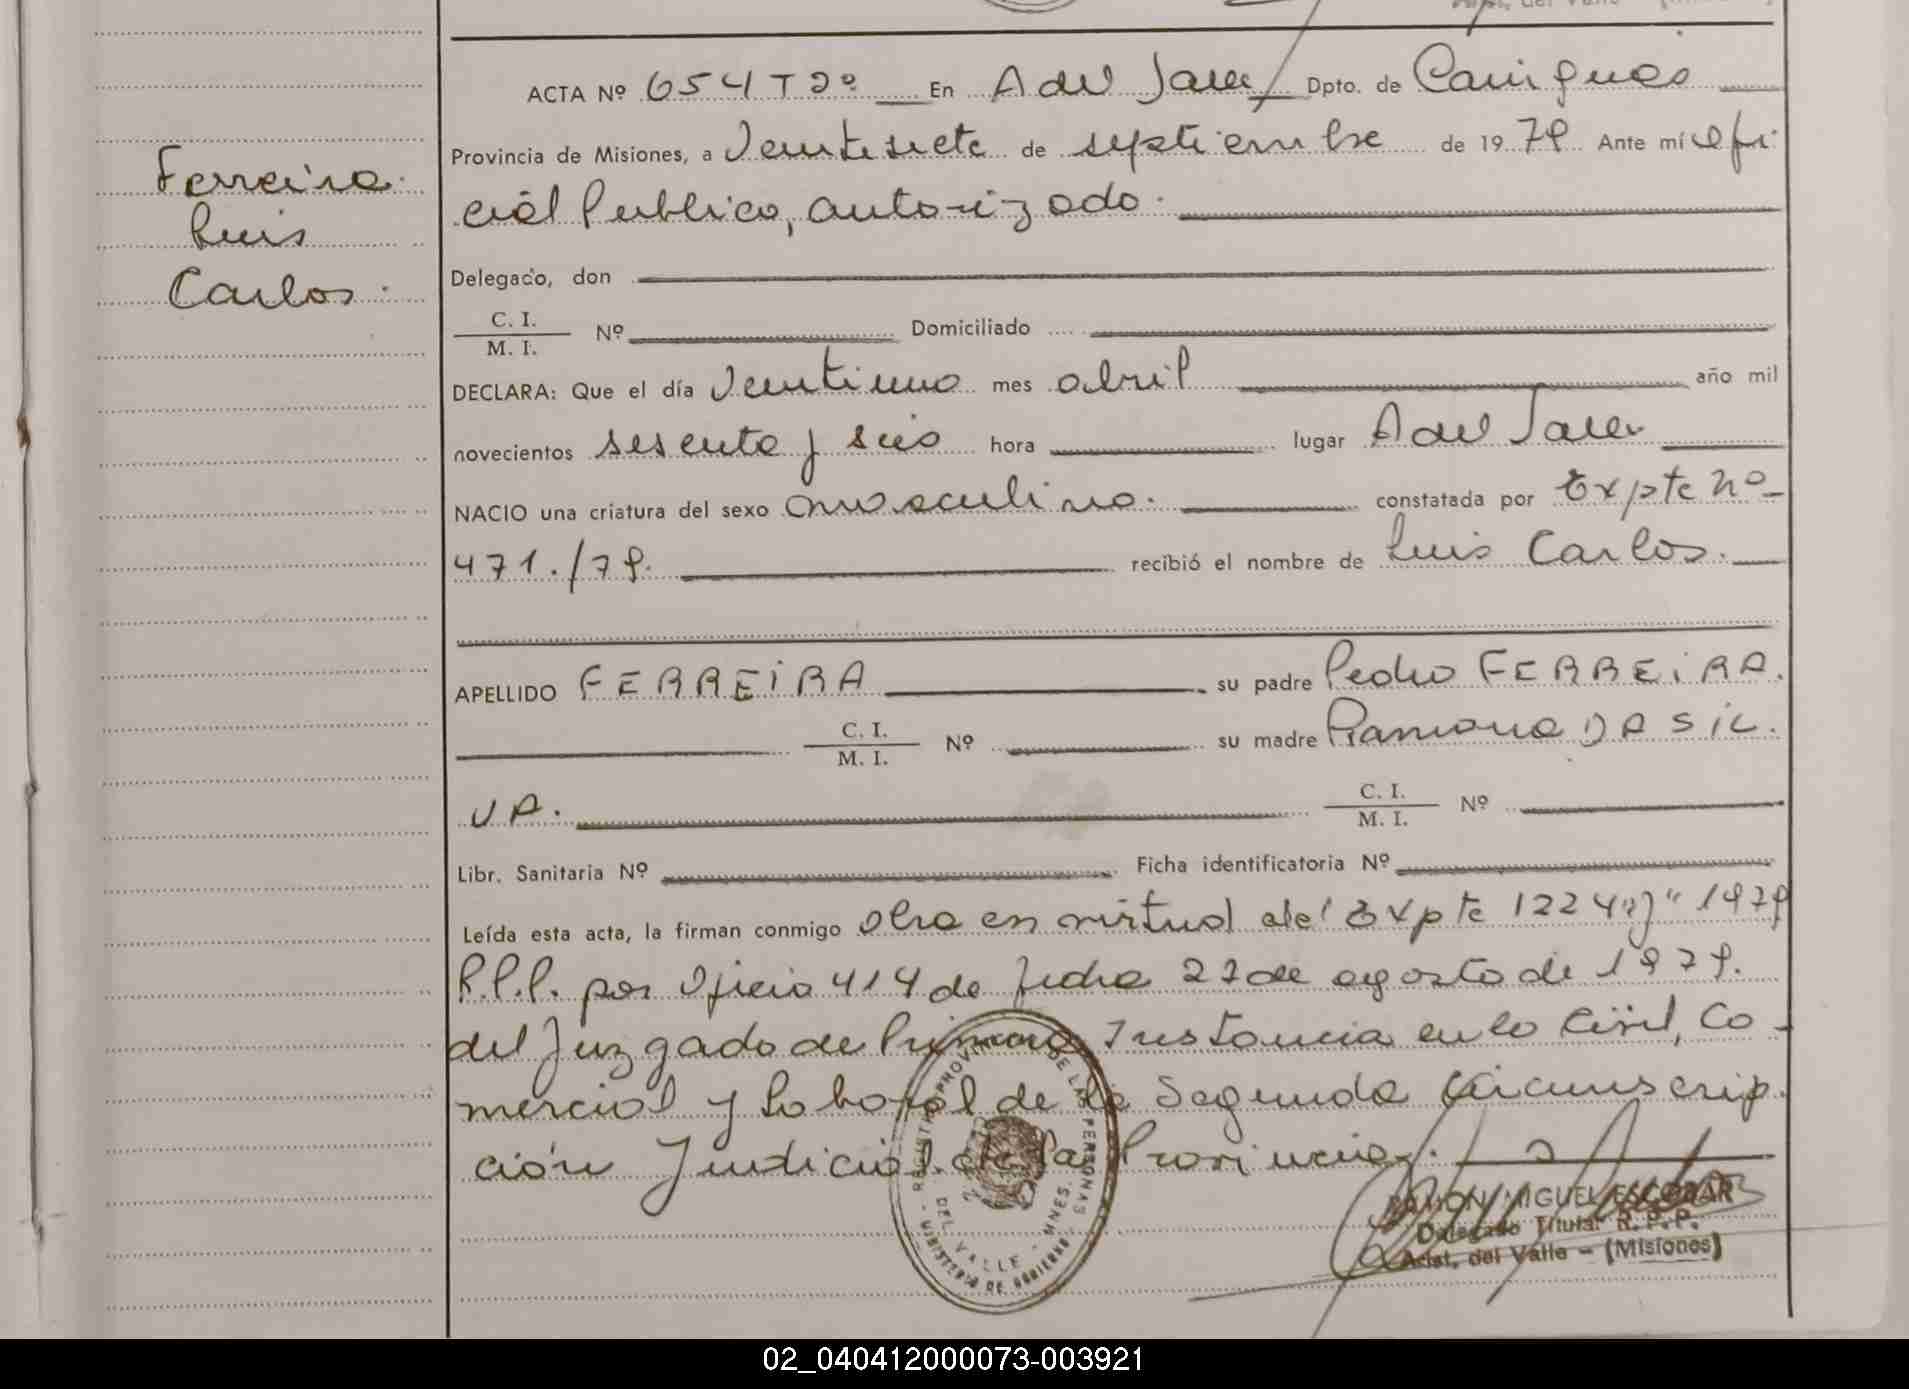 ACTA Nº 654 T 2º En A del Valle Dpto. de Cainguás
Provincia de Misiones, a Veintisiete de septiembre de 1979 Ante mí ofi
cial Publico, autorizado.
Ferreira
Luis
Carlos.
Delegado, don
C. I.
M. I.
Nº Domiciliado
DECLARA: Que el día Veintiuno mes abril año mil
novecientos sesenta y seis hora lugar A del Valle
NACIO una criatura del sexo masculino. constatada por Expte nº
471./79. recibió el nombre de Luis Carlos.
APELLIDO FERREiRA su padre Pedro FERREiRA.
C. I.
M. I.
Nº su madre Ramona DA SiL.
VA.
C. I.
M. I.
Nº
Libr. Sanitaria Nº Ficha identificatoria Nº
Leída esta acta, la firman conmigo obra en virtud del Expte 1224 1979
R.P.P. por Oficio 414 de fecha 27 de agosto de 1979.
del Juzgado de Primera Instancia en lo Civil, Co-
mercial y Laboral de la Segunda Circunscrip.
ción Judicial de la Provincia.
REGISTRO PROVINCIAL DE LAS PERSONAS
DEL VALLE - MNES.
MINISTERIO DE GOBIERNO
RAMON MIGUEL ESCOBAR
Delegado Titular R. P. P.
Arist. del Valle - (Misiones)
02_040412000073-003921